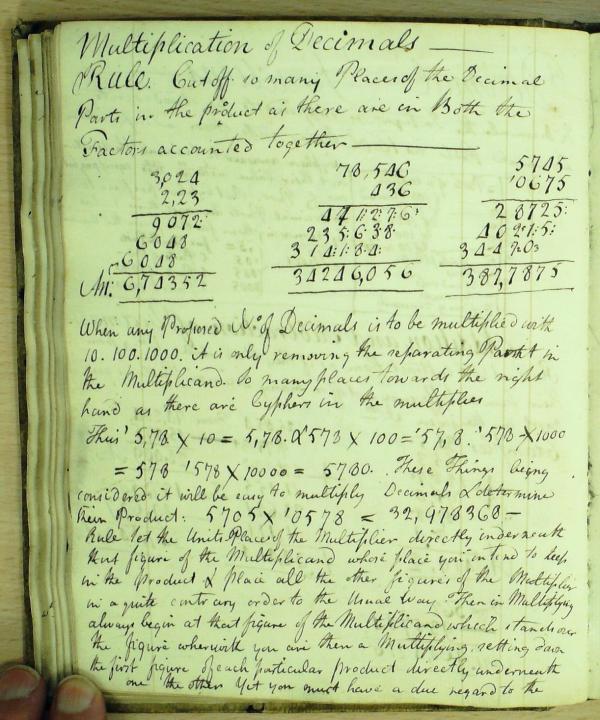 Multiplication of Decimals
Rule. Cut off so many Places of the Decimal
Parts in the product as there are in Both the
Factors accounted together
3,024 78,546 5745
2,23 436 '0675
9072 471276 28725
6048 235638 40215
6048 314184 34470
Ans: 6,74352 34246,056 387,7875
When any Proposed No. of Decimals is to be multiplied with
10. 100. 1000. it is only removing the separating Point in
the Multiplicand. So many places towards the right
hand as there are Cyphers in the multiplier
Thus 5,78 X 10 = 5,78. & 578 X 100 = '57,8. '578 X 1000
= 578 '578 X 10000 = 5780. These Things being
considered it will be easy to multiply Decimals & determine
their Product: 5705 X '0578 = 32,978368
Rule let the Units Place of the Multiplier directly underneath
that figure of the Multiplicand whose place you intend to keep
in the Product & place all the other figures of the Multiplier
in a quite contrary order to the Usual Way. Then in Multiplying
always begin at that figure of the Multiplicand which stands over
the figure wherwith you are then a Multiplying, setting down
the first figure of each particular product directly underneath
one the other Yet you must have a due regard to the